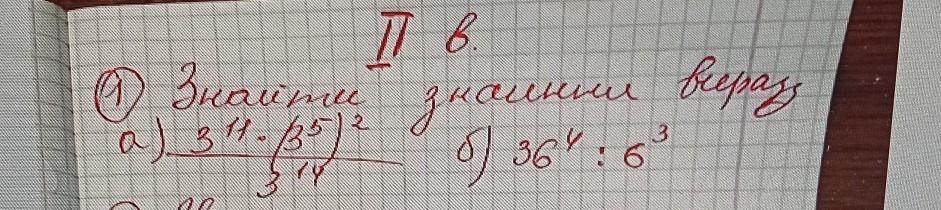 II в.
① Знайти значення виразу
а) \frac{3^{11} \cdot (3^5)^2}{3^{14}} б) 36^4 : 6^3